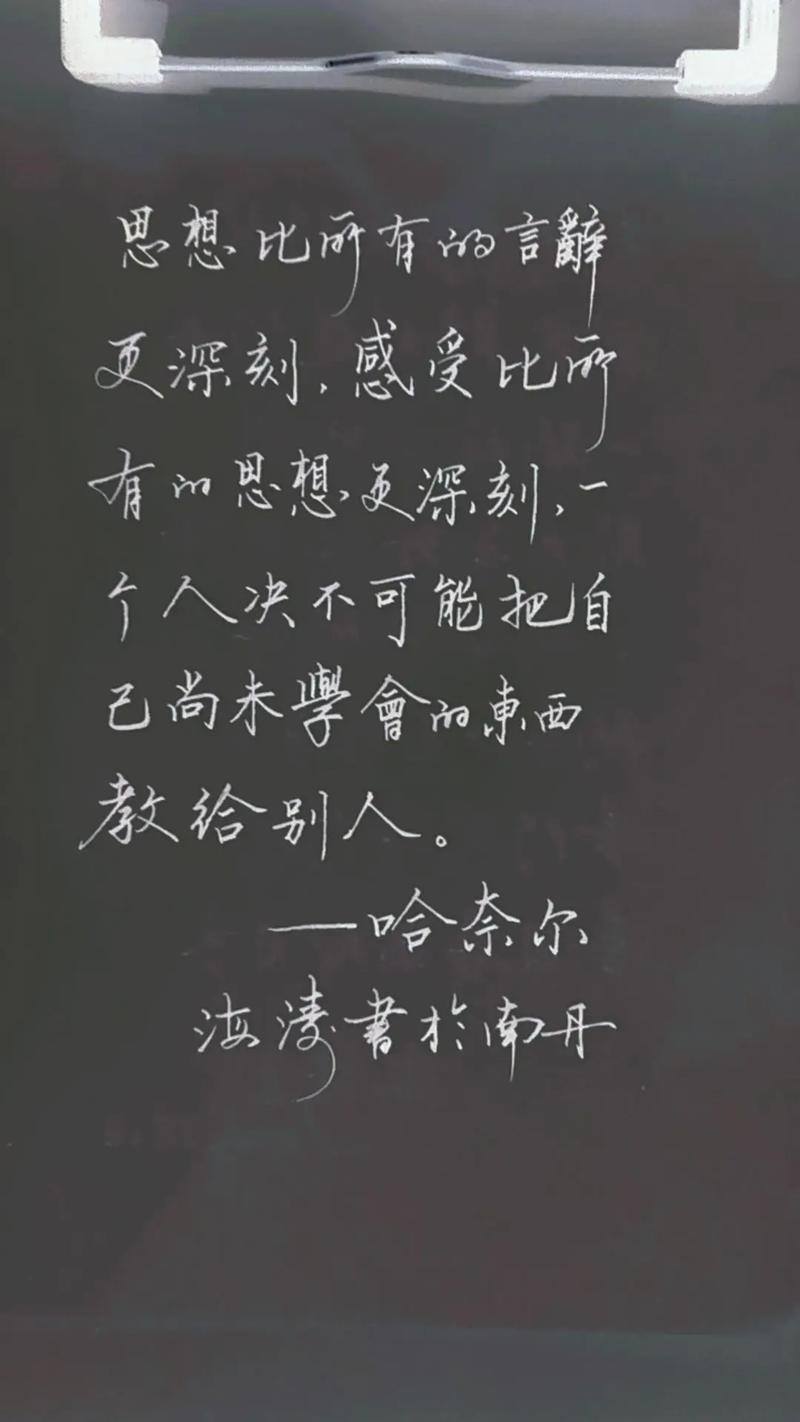 思想比所有的言辭
更深刻，感受比所
有的思想更深刻，一
个人决不可能把自
己尚未學會的東西
教给别人。
——哈奈尔
海濤書於南丹